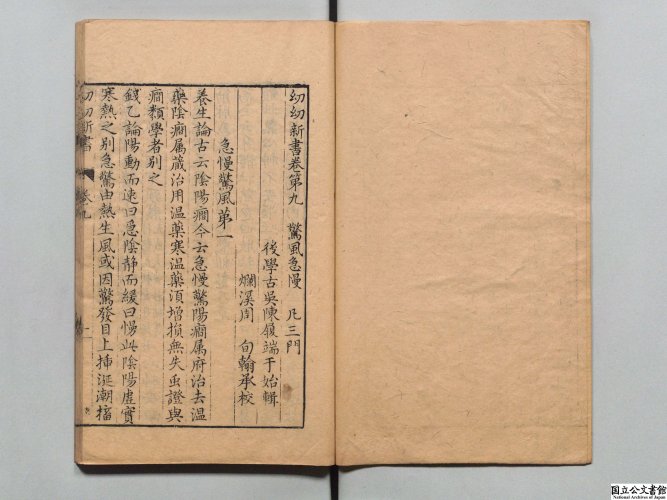 幼幼新書卷第九　驚風急慢　凡三門
後學古吳陳履端于始輯
爛溪周　旬翰承校
急慢驚風第一
養生論古云陰陽癇今云急慢驚陽癇属府治去温
藥陰癇属蔵治用温藥寒温藥湏增損無失䖝證與
癇類學者别之
錢乙論陽動而速曰急陰静而緩曰慢此陰陽虚實
寒熱之别急驚由熱生風或因驚發目上揷涎潮搐
幼幼新書　卷九　一
国立公文書館
National Archives of Japan